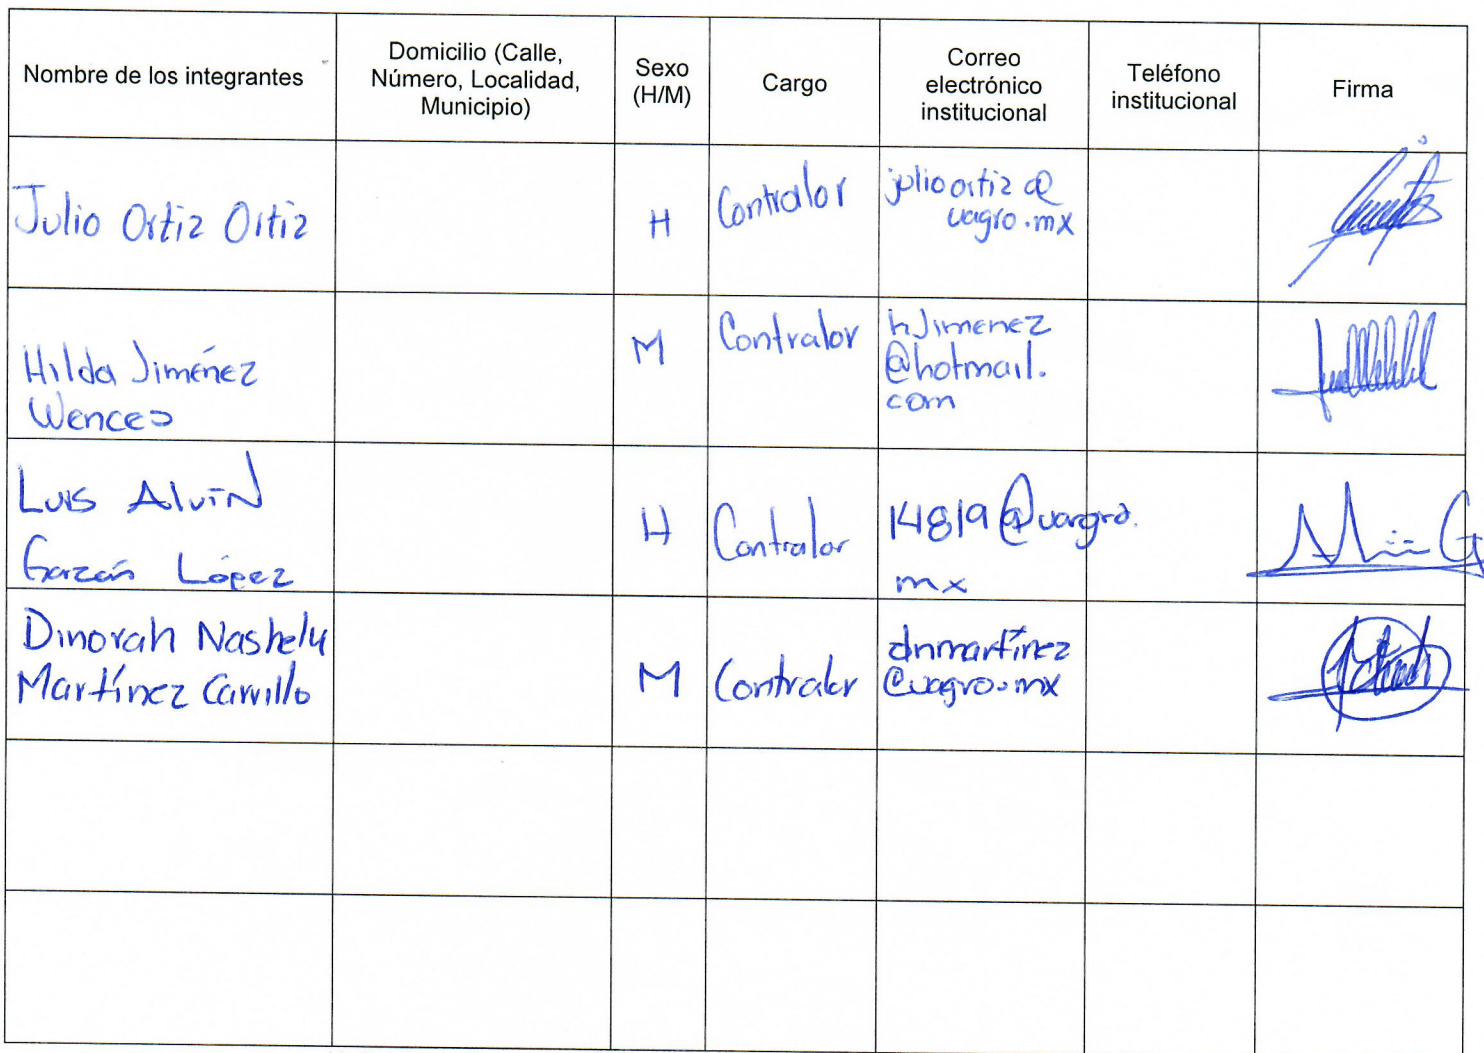 Nombre de los integrantes
Domicilio (Calle,
Número, Localidad,
Municipio)
Sexo
(H/M)
Cargo
Correo
electrónico
institucional
Teléfono
institucional
Firma
Julio Ortiz Ortiz
H
Contralor
julioortiz@
uagro.mx
Hilda Jiménez
Wences
M
Contralor
hJimenez
@hotmail.
com
Luis Alvin
Garzón López
H
Contralor
14819@uargro.
mx
Dinorah Nashely
Martínez Carrillo
M
Contralor
dnmartínez
@uagro.mx